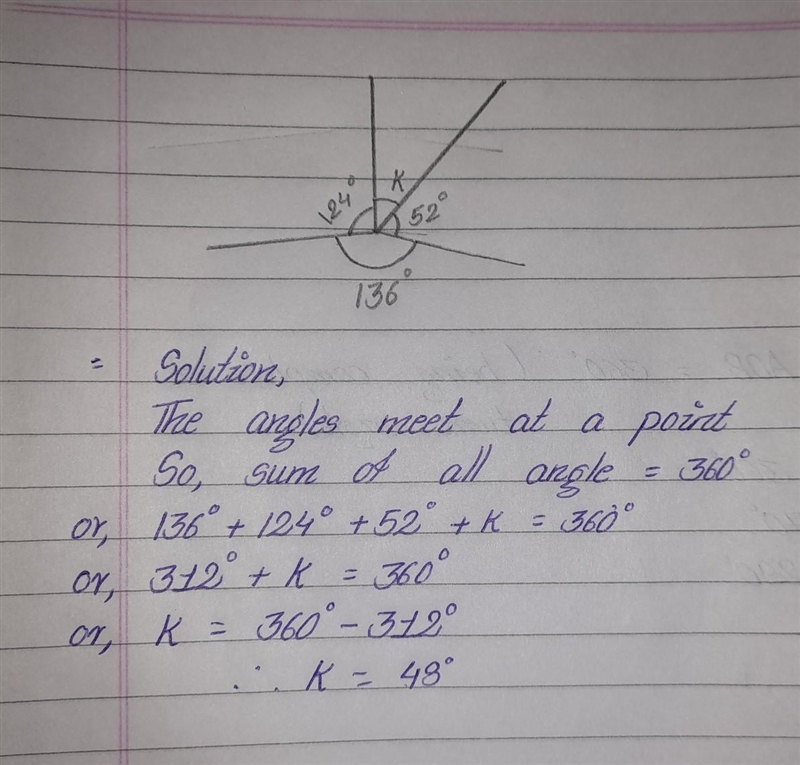 K
124°
52°
136°
= Solution,
The angles meet at a point
So, sum of all angle = 360°
or, 136° + 124° + 52° + K = 360°
or, 312° + K = 360°
or, K = 360° - 312°
∴ K = 48°